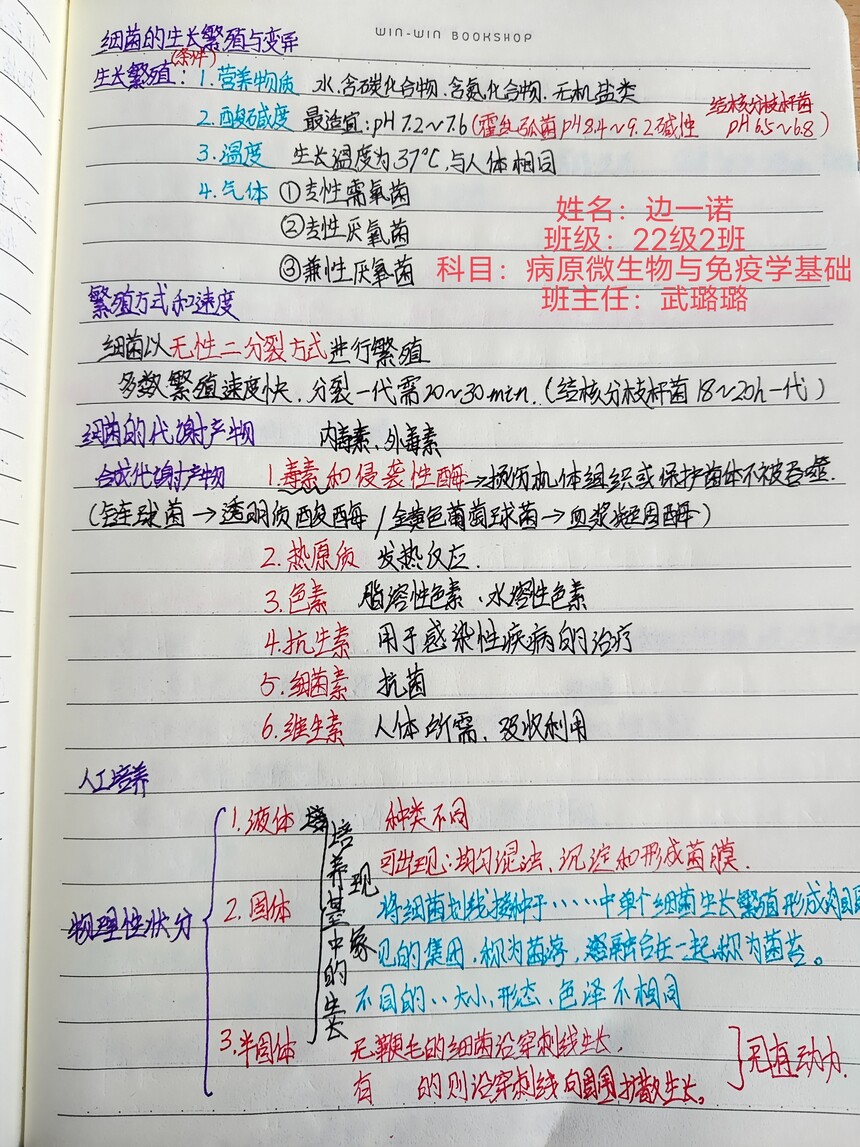 WIN-WIN BOOKSHOP
细菌的生长繁殖与变异
(条件)
生长繁殖：1.营养物质 水.含碳化合物.含氮化合物.无机盐类
2.酸碱度 最适宜：pH 7.2~7.6(霍乱弧菌pH8.4~9.2碱性 结核分枝杆菌 pH6.5~6.8)
3.温度 生长温度为37℃,与人体相同
4.气体 ①专性需氧菌
②专性厌氧菌
③兼性厌氧菌
姓名：边一诺
班级：22级2班
科目：病原微生物与免疫学基础
班主任：武璐璐
繁殖方式和速度
细菌以无性二分裂方式进行繁殖
多数繁殖速度快.分裂一代需20~30min.(结核分枝杆菌18~20h一代)
细菌的代谢产物 内毒素、外毒素
合成代谢产物 1.毒素和侵袭性酶→损伤机体组织或保护菌体不被吞噬.
(链球菌→透明质酸酶/金黄色葡萄球菌→血浆凝固酶)
2.热原质 发热反应.
3.色素 脂溶性色素、水溶性色素
4.抗生素 用于感染性疾病的治疗
5.细菌素 抗菌
6.维生素 人体所需、吸收利用
人工培养
物理性状分
1.液体 种类不同
可出现：均匀混浊、沉淀和形成菌膜.
2.固体 将细菌划线接种于……中单个细菌生长繁殖形成肉眼
见的集团,称为菌落,融合在一起称为菌苔。
不同的..大小、形态、色泽不相同
培养基中的生长
现象
3.半固体 无鞭毛的细菌沿穿刺线生长.
有 的则沿穿刺线向周围扩散生长。
动力.